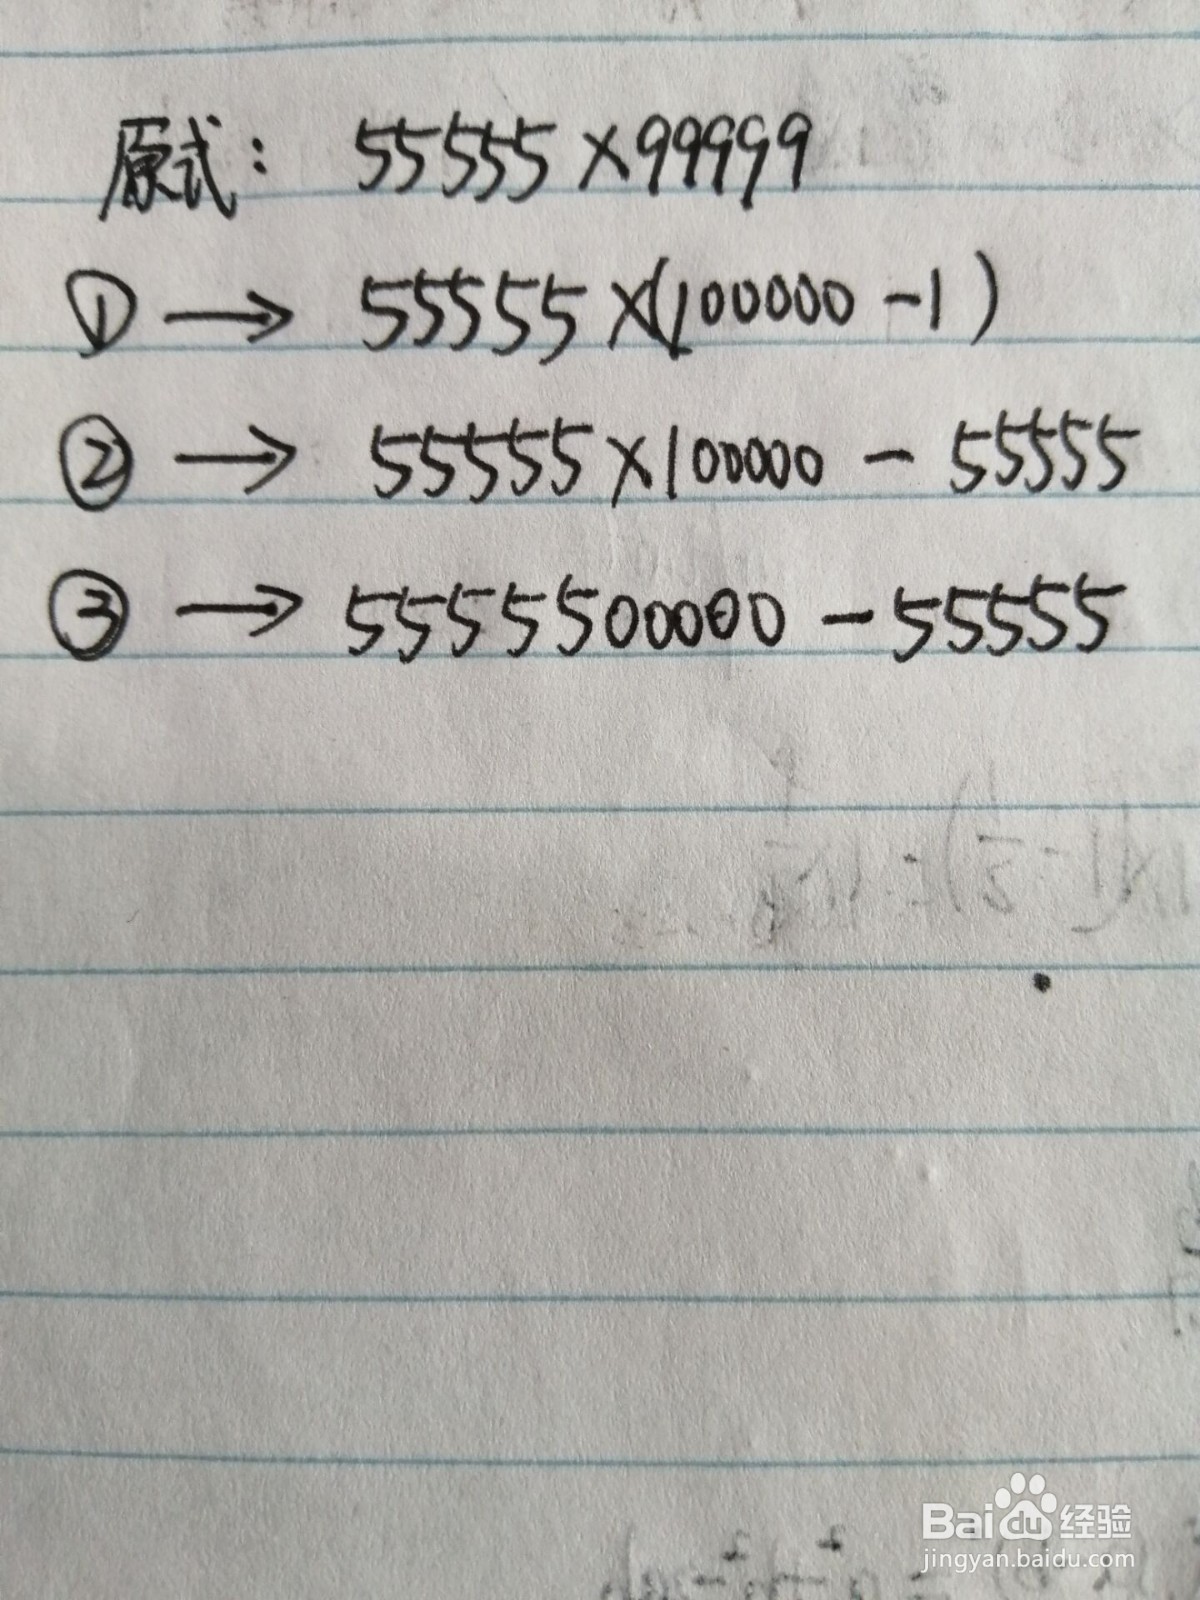 原式: 55555×99999
① → 55555×(100000-1)
② → 55555×100000-55555
③ → 5555500000-55555
Baidu经验
jingyan.baidu.com